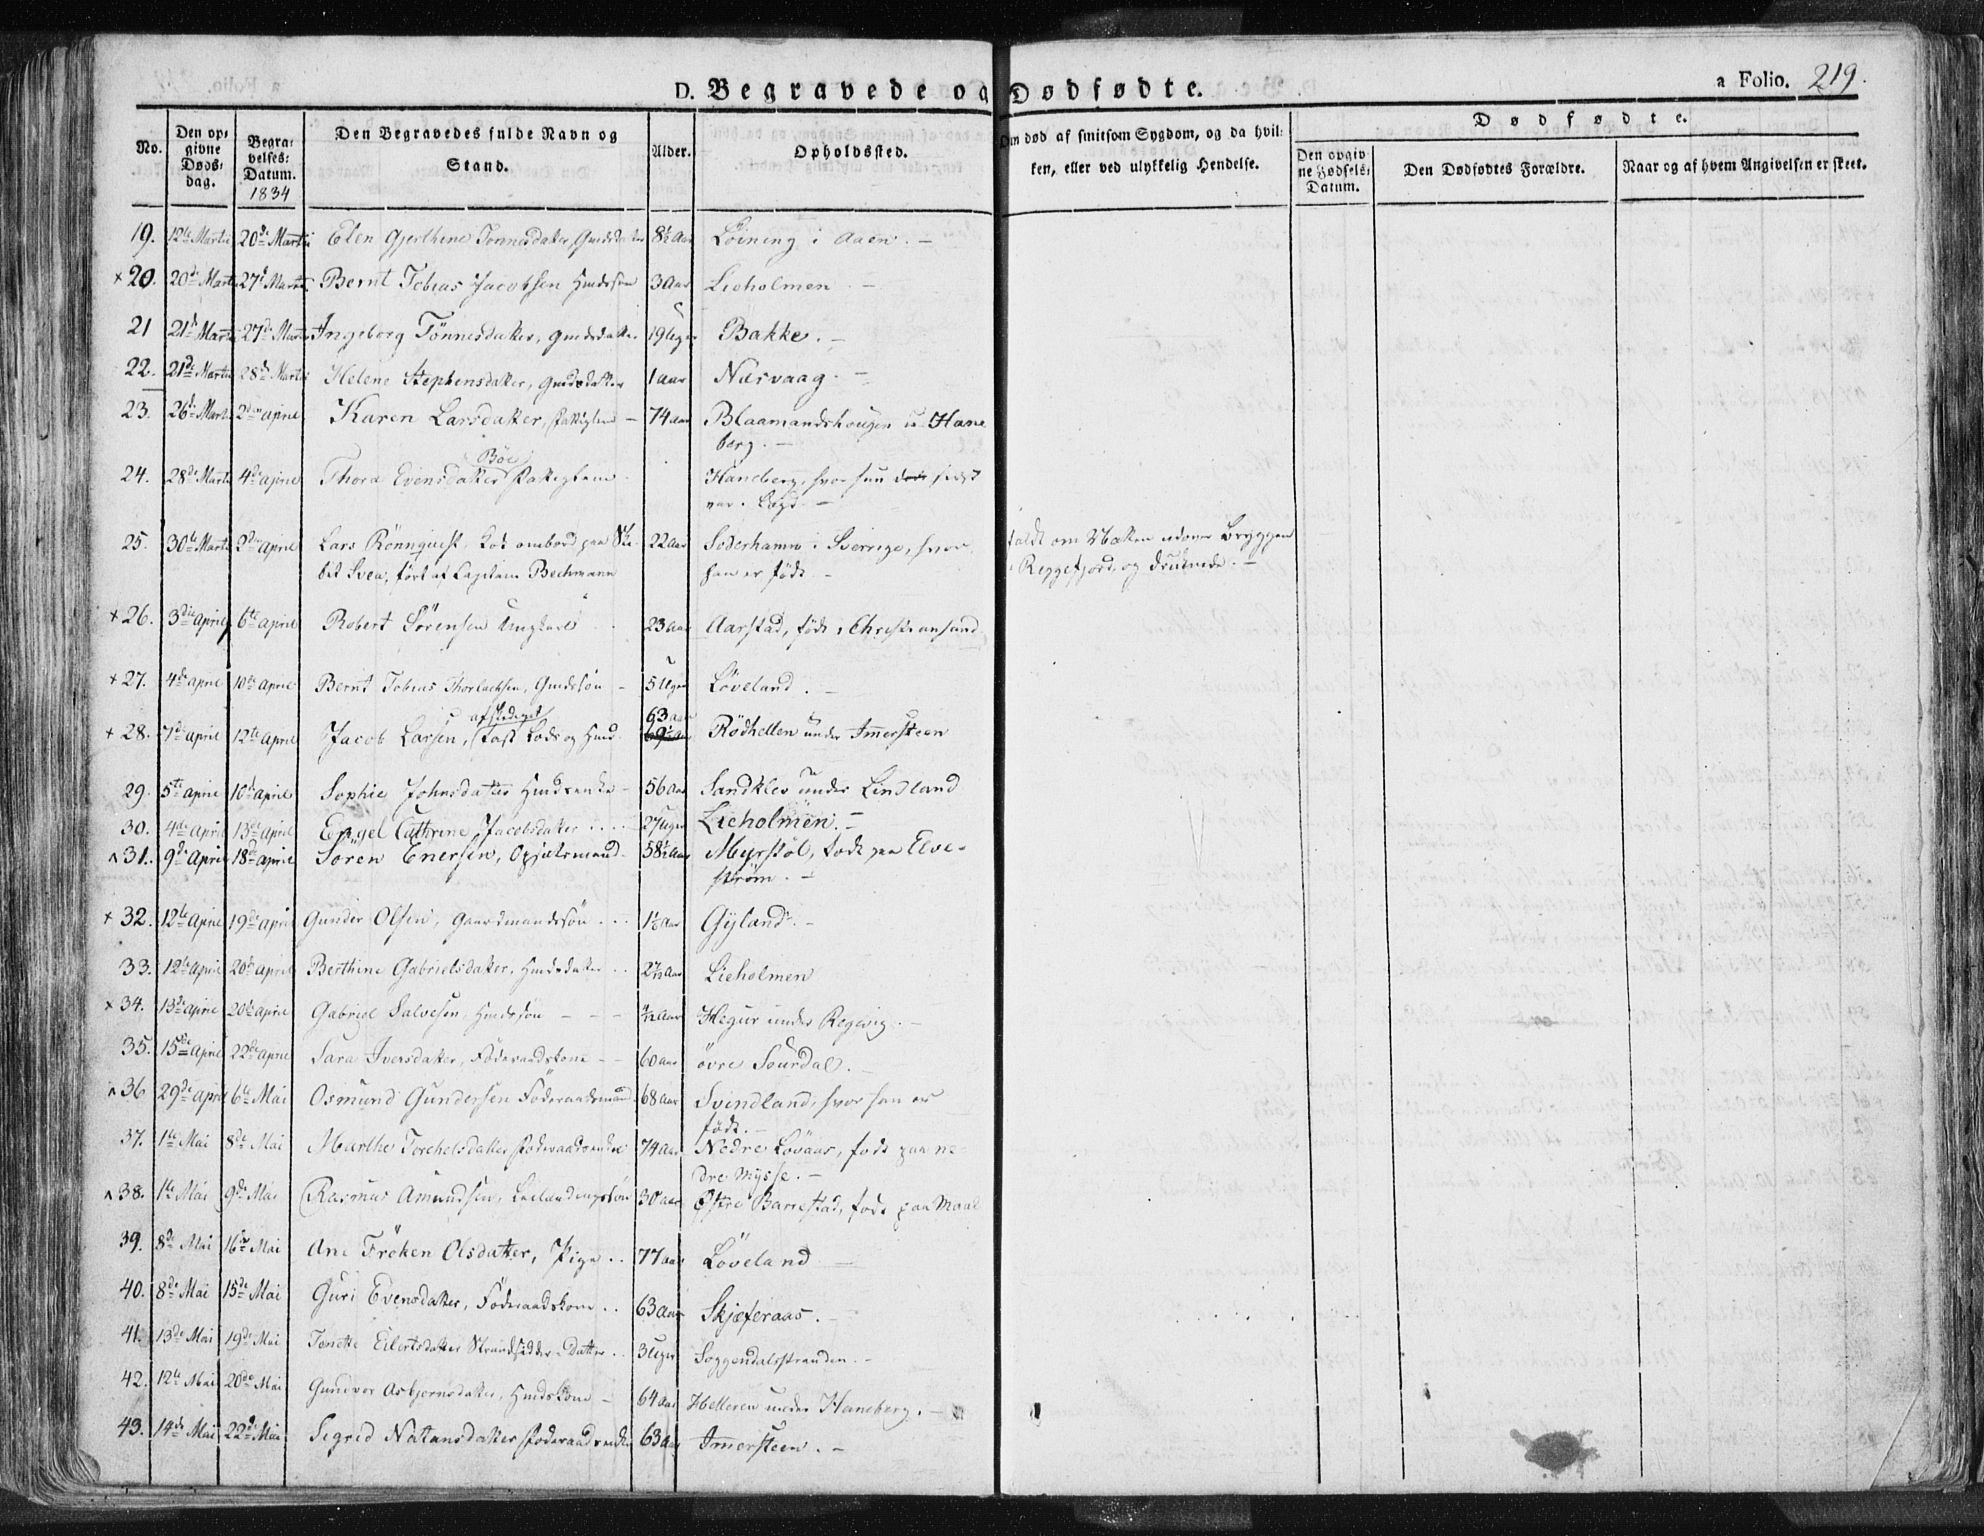 D. Begravede og Dødfødte.
a Folio. 219.
No.
Den opgivne Døds-dag.
Begravelses-Datum. 1834
Den Begravedes fulde Navn og Stand.
Alder.
Opholdssted.
Om død af smitsom Sygdom, og da hvilken, eller ved ulykkelig Hendelse.
Dødfødte.
Den opgivne Fødsels-Datum.
Den Dødfødtes Forældre.
Naar og af hvem Angivelsen er skeet.
19. 12te Martii 20de Martii Elen Gjerthine Tønnesdatter, 8½ Aar Løining i Aaen. -
×20. 20de Martii 27de Martii Bernt Tobias Jacobsen Huusmandssøn 3 Aar Lieholmen -
21 21de Martii 27de Martii Ingeborg Tønnesdatter, 19 Uger Bakke. -
22. 21de Martii 28de Martii Helene Stephensdatter, 1 Aar Næsvaag. -
23. 26de Martii 2den April Karen Larsdatter, Fattiglem - 74 Aar Blaamandshougen u. Hane
berg. -
Böe
24. 28de Martii 4de April Thora Evensdatter Fattiglem Haneberg, hvor hun sidst
var i Lægd. -
25. 30te Martii 3die April Lars Rönnquist, Kok ombord paa Ski- 22 Aar Söderhamn i Sverrige, hvor faldt om Natten udover Bryggen
bet Svea, ført af Capitain Bechmann han er født. - i Reggefjord, og druknede. -
×26. 3die April 6te April Robert Sörensen Ungkarl 23 Aar Aarstad, født i Christiansand
×27. 4de April 10de April Bernt Tobias Thorlachsen, - 5 Uger Löveland. -
afskediget 63 Aar
×28. 7de April 12te April Jacob Larsen, fast Lods og 69½ Aar Rödhellen under Imersteen
29. 5te April 10de April Sophie Johnsdatter - 56 Aar Sandklev under Lindland
30. 4de April 13de April Engel Cathrine Jacobsdatter .... 27 Uger Lieholmen. -
×31. 9de April 18de April Sören Enersen, Opsidtsmand 58½ Aar Myrstöl, født paa Elve-
ström. -
×32. 12te April 19de April Gunder Olsen, Gaardmandssön ... 1½ Aar Gyland. -
33. 12te April 20de April Berthine Gabrielsdatter, .. Aar Lieholmen
×34. 13de April 20de April Gabriel Salvesen, - - - Aar Hegur under Regevig. -
35. 15de April 22de April Sara Iversdatter, Föderaadskone - - 60 Aar övre Sourdal. -
×36 29de April 6te Mai Osmund Gundersen Föderaadsmand. 68 Aar Svindland, hvor han er
født. -
37. 1te Mai 8de Mai Marthe Torchelsdatter Föderaadsenke 74 Aar Nedre Lövaas, født paa ne-
dre Mysse. -
×38. 1te Mai 9de Mai Rasmus Amundsen, Leilændingssön 30 Aar Østre Barrestad, født paa Moal
39. 8de Mai 16de Mai Ane Fröken Olsdatter, Pige .. 77 Aar Löveland -
40. 8de Mai 15de Mai Guri Evensdatter, Föderaadskone .. 63 Aar Skjæferaas. -
41. 13de Mai 19de Mai Tonette Eilertsdatter Strandsidder-Datter .. 3 Uger Soggendalsstranden. -
42. 12te Mai 20de Mai Gunvor Asbjørnsdatter, - 64 Aar Helleren under Haneberg. -
43. 14de Mai 22de Mai Sigrid Natansdatter Föderaadsenke 63 Aar Imersteen. -